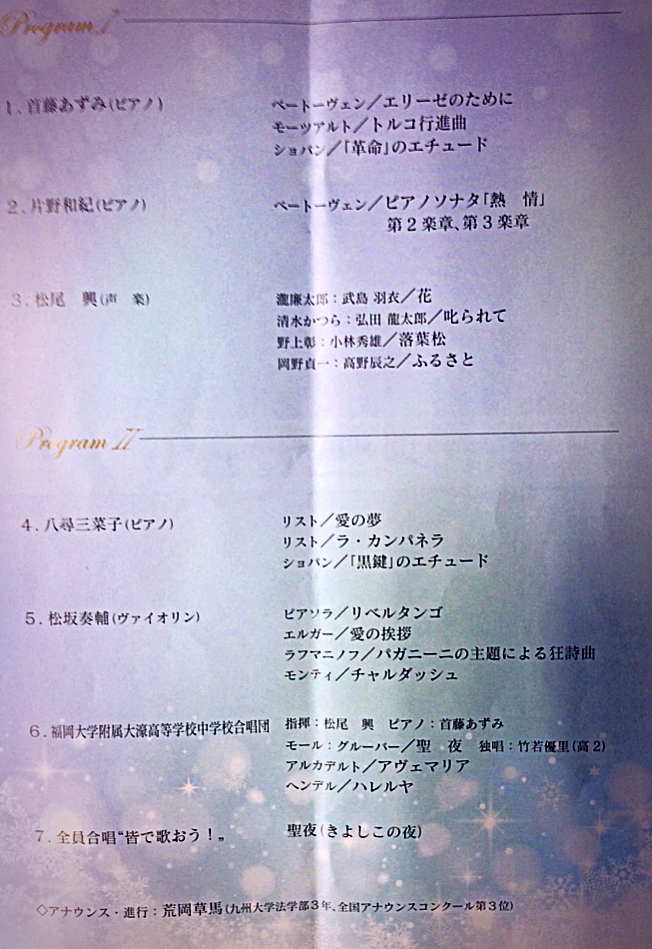 Program I
1. 首藤あずみ(ピアノ) ベートーヴェン／エリーゼのために
モーツアルト／トルコ行進曲
ショパン／「革命」のエチュード
2. 片野和紀(ピアノ) ベートーヴェン／ピアノソナタ「熱　情」
第2楽章、第3楽章
3. 松尾　興(声　楽) 瀧廉太郎：武島 羽衣／花
清水かつら：弘田 龍太郎／叱られて
野上彰：小林秀雄／落葉松
岡野貞一：高野辰之／ふるさと
Program II
4. 八尋三菜子(ピアノ) リスト／愛の夢
リスト／ラ・カンパネラ
ショパン／「黒鍵」のエチュード
5. 松坂奏輔(ヴァイオリン) ピアソラ／リベルタンゴ
エルガー／愛の挨拶
ラフマニノフ／パガニーニの主題による狂詩曲
モンティ／チャルダッシュ
6. 福岡大学附属大濠高等学校中学校合唱団 指揮：松尾　興 ピアノ：首藤あずみ
モール：グルーバー／聖　夜 独唱：竹若優里(高2)
アルカデルト／アヴェマリア
ヘンデル／ハレルヤ
7. 全員合唱“皆で歌おう！„ 聖夜(きよしこの夜)
◇アナウンス・進行：荒岡草馬(九州大学法学部3年、全国アナウンスコンクール第3位)